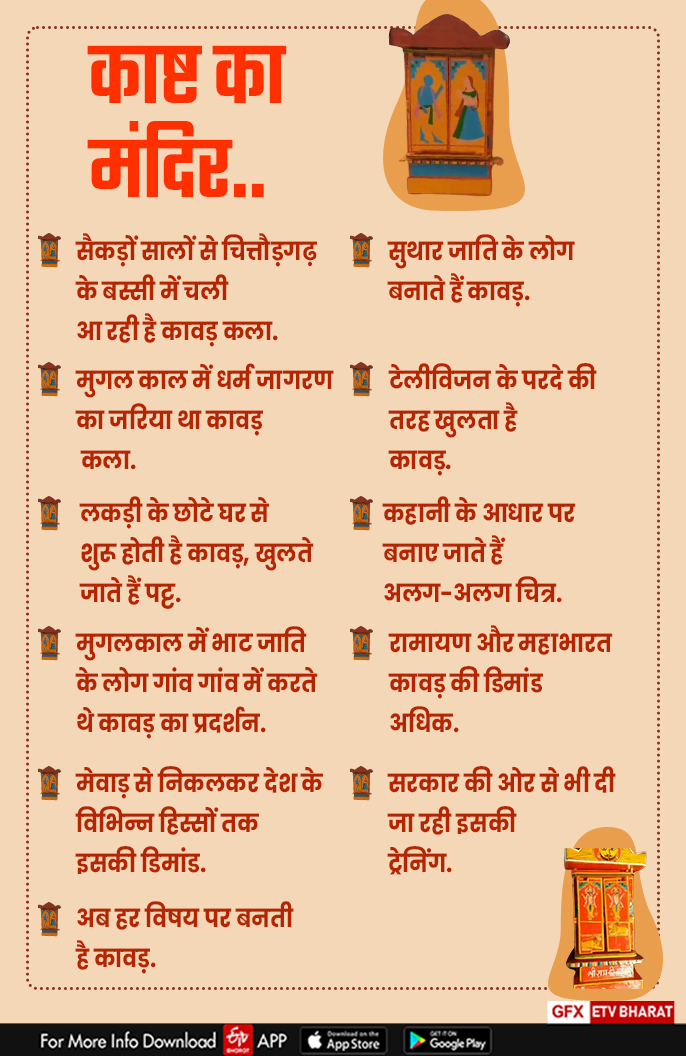 काष्ट का
मंदिर..
सैकड़ों सालों से चित्तौड़गढ़
के बस्सी में चली
आ रही है कावड़ कला.
मुगल काल में धर्म जागरण
का जरिया था कावड़
कला.
लकड़ी के छोटे घर से
शुरू होती है कावड़, खुलते
जाते हैं पट्ट.
मुगलकाल में भाट जाति
के लोग गांव गांव में करते
थे कावड़ का प्रदर्शन.
मेवाड़ से निकलकर देश के
विभिन्न हिस्सों तक
इसकी डिमांड.
अब हर विषय पर बनती
है कावड़.
सुथार जाति के लोग
बनाते हैं कावड़.
टेलीविजन के परदे की
तरह खुलता है
कावड़.
कहानी के आधार पर
बनाए जाते हैं
अलग-अलग चित्र.
रामायण और महाभारत
कावड़ की डिमांड
अधिक.
सरकार की ओर से भी दी
जा रही इसकी
ट्रेनिंग.
GFX ETV BHARAT
For More Info Download ETV BHARAT APP
Download on the
App Store
GET IT ON
Google Play